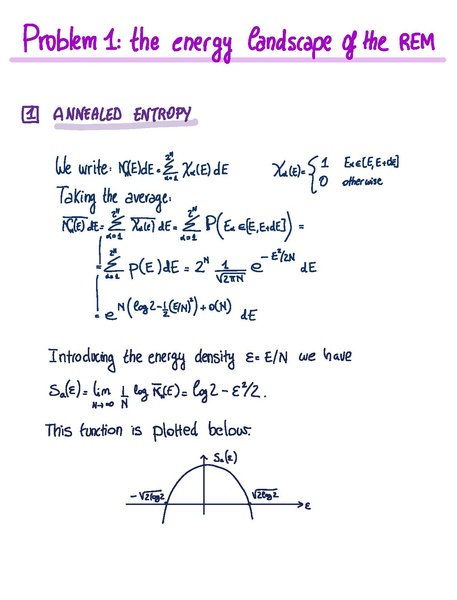 Problem 1: the energy landscape of the REM
1 ANNEALED ENTROPY
We write: N(E)dE = Σ_{α=1}^{2^N} χ_α(E) dE    χ_α(E) = { 1 E_α∈[E, E+dE]
0 otherwise
Taking the average:
\overline{N(E)} dE = Σ_{α=1}^{2^N} \overline{χ_α(E)} dE = Σ_{α=1}^{2^N} P(E_α∈[E, E+dE]) =
= Σ_{α=1}^{2^N} p(E) dE = 2^N 1/√(2πN) e^{-E²/2N} dE
= e^{N(log2 - 1/2 (E/N)²) + o(N)} dE
Introducing the energy density ε = E/N we have
S_a(ε) = lim_{N→∞} 1/N log \overline{N}(E) = log2 - ε²/2.
This function is plotted below:
S_a(ε)
-√2log2    √2log2
ε